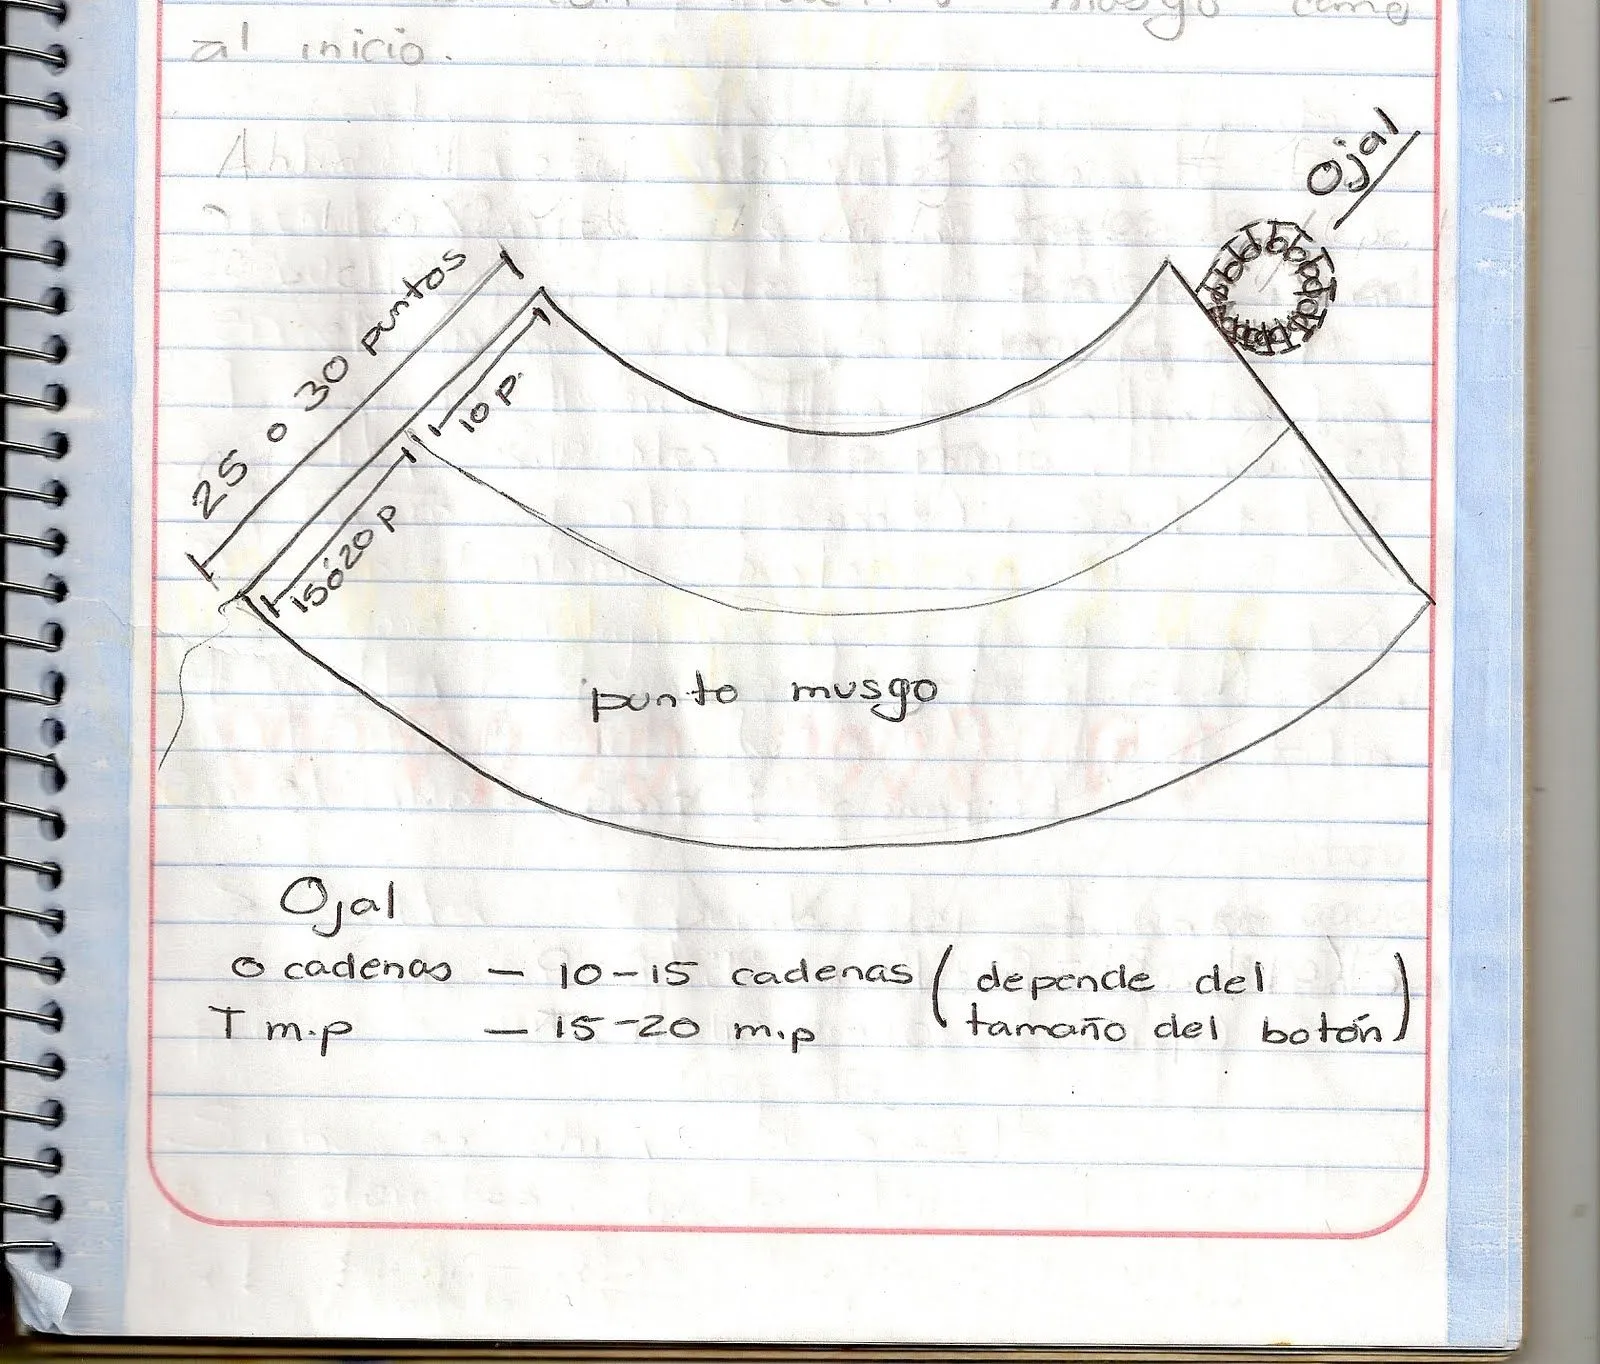 musgo como
al inicio.
Ojal
25 o 30 puntos
10 p.
15ó20 p
punto musgo
Ojal
o cadenas – 10–15 cadenas (depende del
T m.p – 15–20 m.p tamaño del botón)